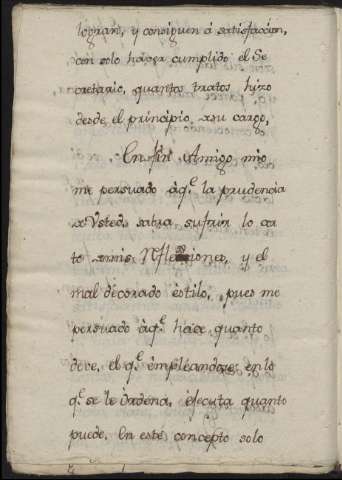 logran, y consiguen à satisfaccion,
con solo háver cumplido el Se
cretario, quantos tratos hizo
desde el principio, a su cargo,
En fin Amigo mio
me persuado àq.e la prudencia
de Vsted, sabra sufrir lo cor
to de mis Reflexiones, y el
mal decorado estilo, pues me
persuado àq.e háce quanto
deve, el q.e èmpleandose en lo
q.e se le òrdena, èjecuta quanto
puede. En este concepto solo